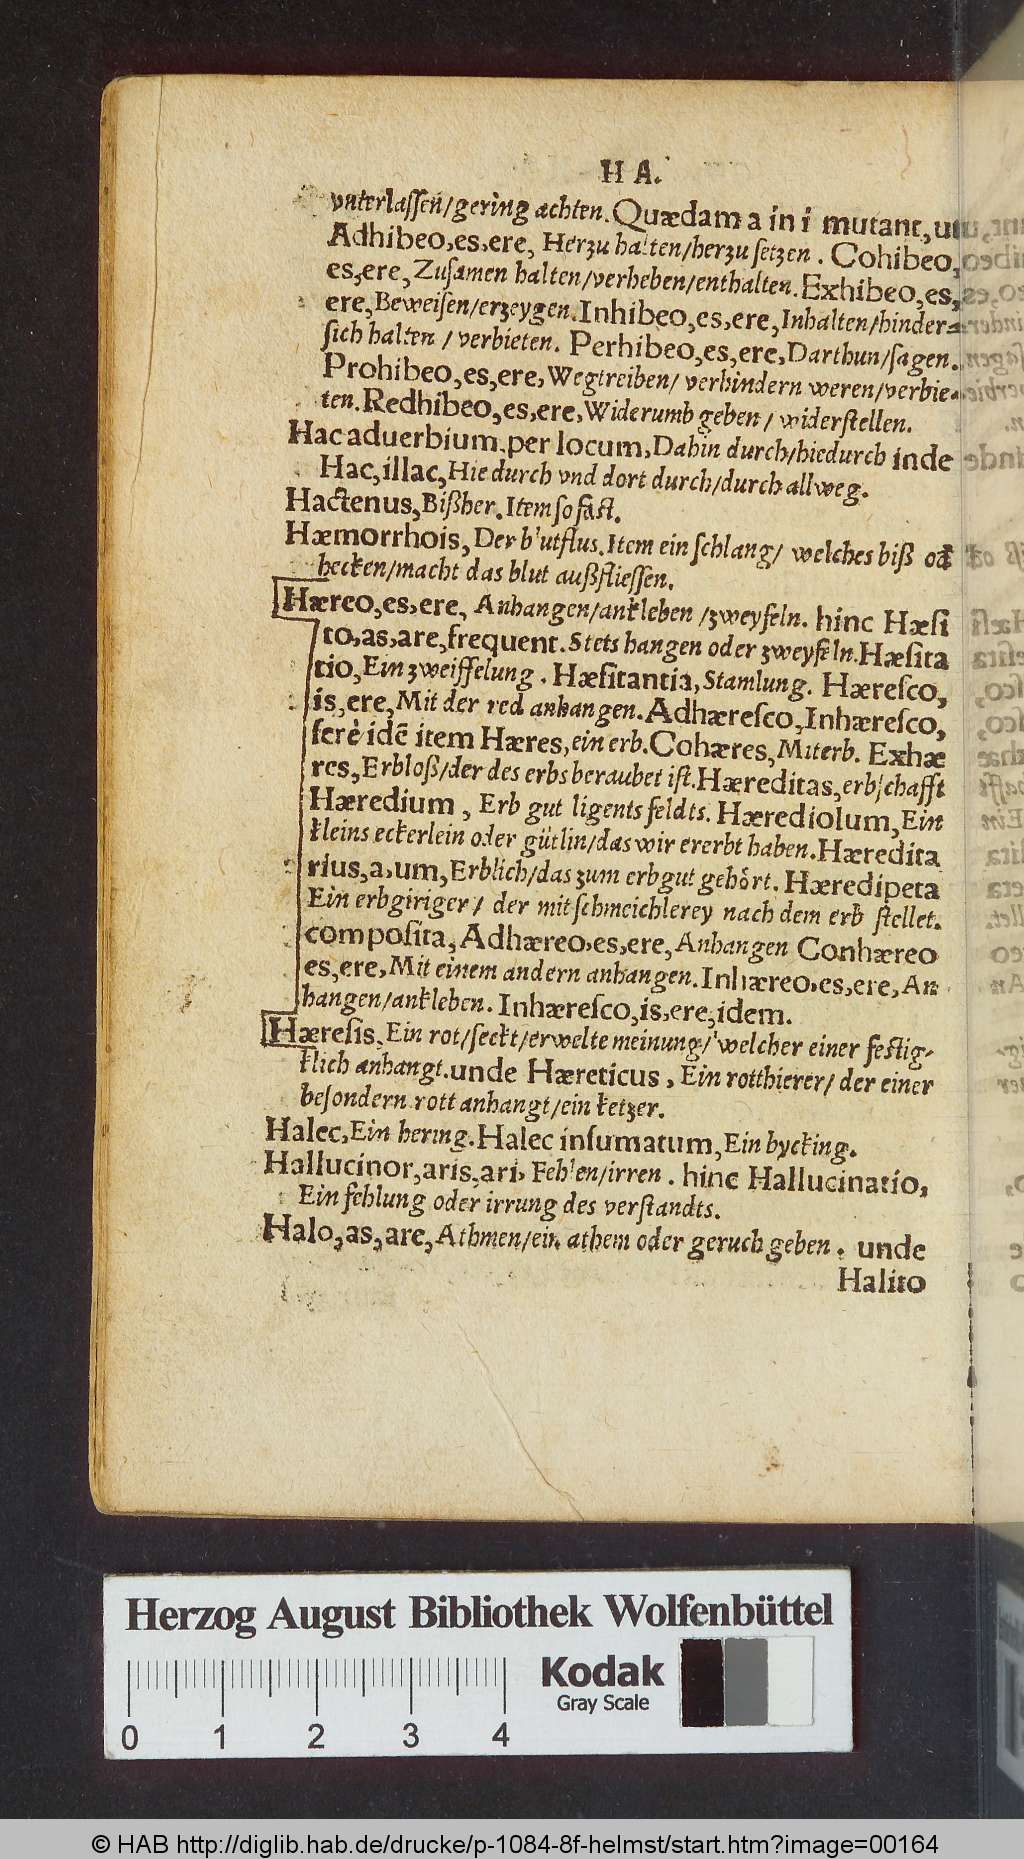 H A.
vnterlassen/gering achten. Quædam a in i mutant, ut
Adhibeo, es, ere, Herzu halten/herzu setzen . Cohibeo,
es, ere, Zusamen halten/verheben/enthalten. Exhibeo, es,
ere, Beweisen/erzeygen. Inhibeo, es, ere, Inhalten/hinder-
sich halten / verbieten. Perhibeo, es, ere, Darthun/sagen.
Prohibeo, es, ere, Wegtreiben/ verhindern weren/verbie-
ten. Redhibeo, es, ere, Widerumb geben / widerstellen.
Hac aduerbium, per locum, Dahin durch/hiedurch inde
Hac, illac, Hie durch vnd dort durch/durch allweg.
Hactenus, Bißher. Item so fast.
Hæmorrhois, Der blutflus. Item ein schlang/ welches biß od
hecken/macht das blut außfliessen.
Hæreo, es, ere, Anhangen/ankleben /zweyfeln. hinc Hæsi
to, as, are, frequent. Stets hangen oder zweyfeln. Hæsita
tio, Ein zweiffelung . Hæsitantia, Stamlung. Hæresco,
is, ere, Mit der red anhangen. Adhæresco, Inhæresco,
ferè idē item Hæres, ein erb. Cohæres, Miterb. Exhæ
res, Erbloß/der des erbs beraubet ist. Hæreditas, erbschafft
Hæredium , Erb gut ligents feldts. Hærediolum, Ein
kleins eckerlein oder gütlin/das wir ererbt haben. Hæredita
rius, a, um, Erblich/das zum erbgut gehört. Hæredipeta
Ein erbgiriger/ der mit schmeichlerey nach dem erb stellet.
composita, Adhæreo, es, ere, Anhangen Conhæreo
es, ere, Mit einem andern anhangen. Inhæreo, es, ere, An
hangen/ankleben. Inhæresco, is, ere, idem.
Hæresis, Ein rot/seckt/erwelte meinung/ welcher einer festig-
klich anhangt. unde Hæreticus , Ein rotthierer/ der einer
besondern rott anhangt/ein ketzer.
Halec, Ein hering. Halec insumatum, Ein bycking.
Hallucinor, aris, ari, Fehlen/irren . hinc Hallucinatio,
Ein fehlung oder irrung des verstandts.
Halo, as, are, Athmen/ein athem oder geruch geben . unde
Halito
Herzog August Bibliothek Wolfenbüttel
Kodak
Gray Scale
0 1 2 3 4
© HAB http://diglib.hab.de/drucke/p-1084-8f-helmst/start.htm?image=00164